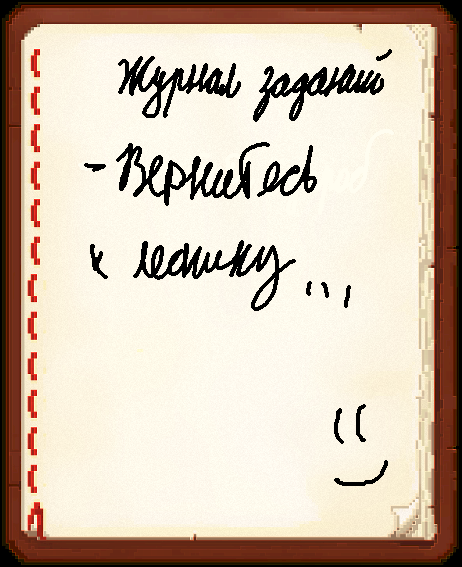 Журнал заданий
- Вернитесь
к лешику...